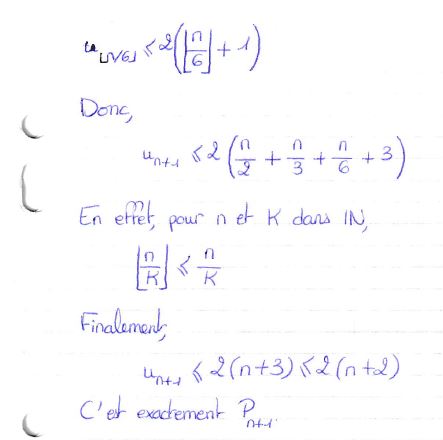 u_{⌊n/6⌋} ≤ 2(⌊n/6⌋ + 1)
Donc,
u_{n+1} ≤ 2(n/2 + n/3 + n/6 + 3)
En effet, pour n et K dans IN,
⌊n/K⌋ ≤ n/K
Finalement,
u_{n+1} ≤ 2(n+3) ≤ 2(n+2)
C'est exactement P_{n+1}.